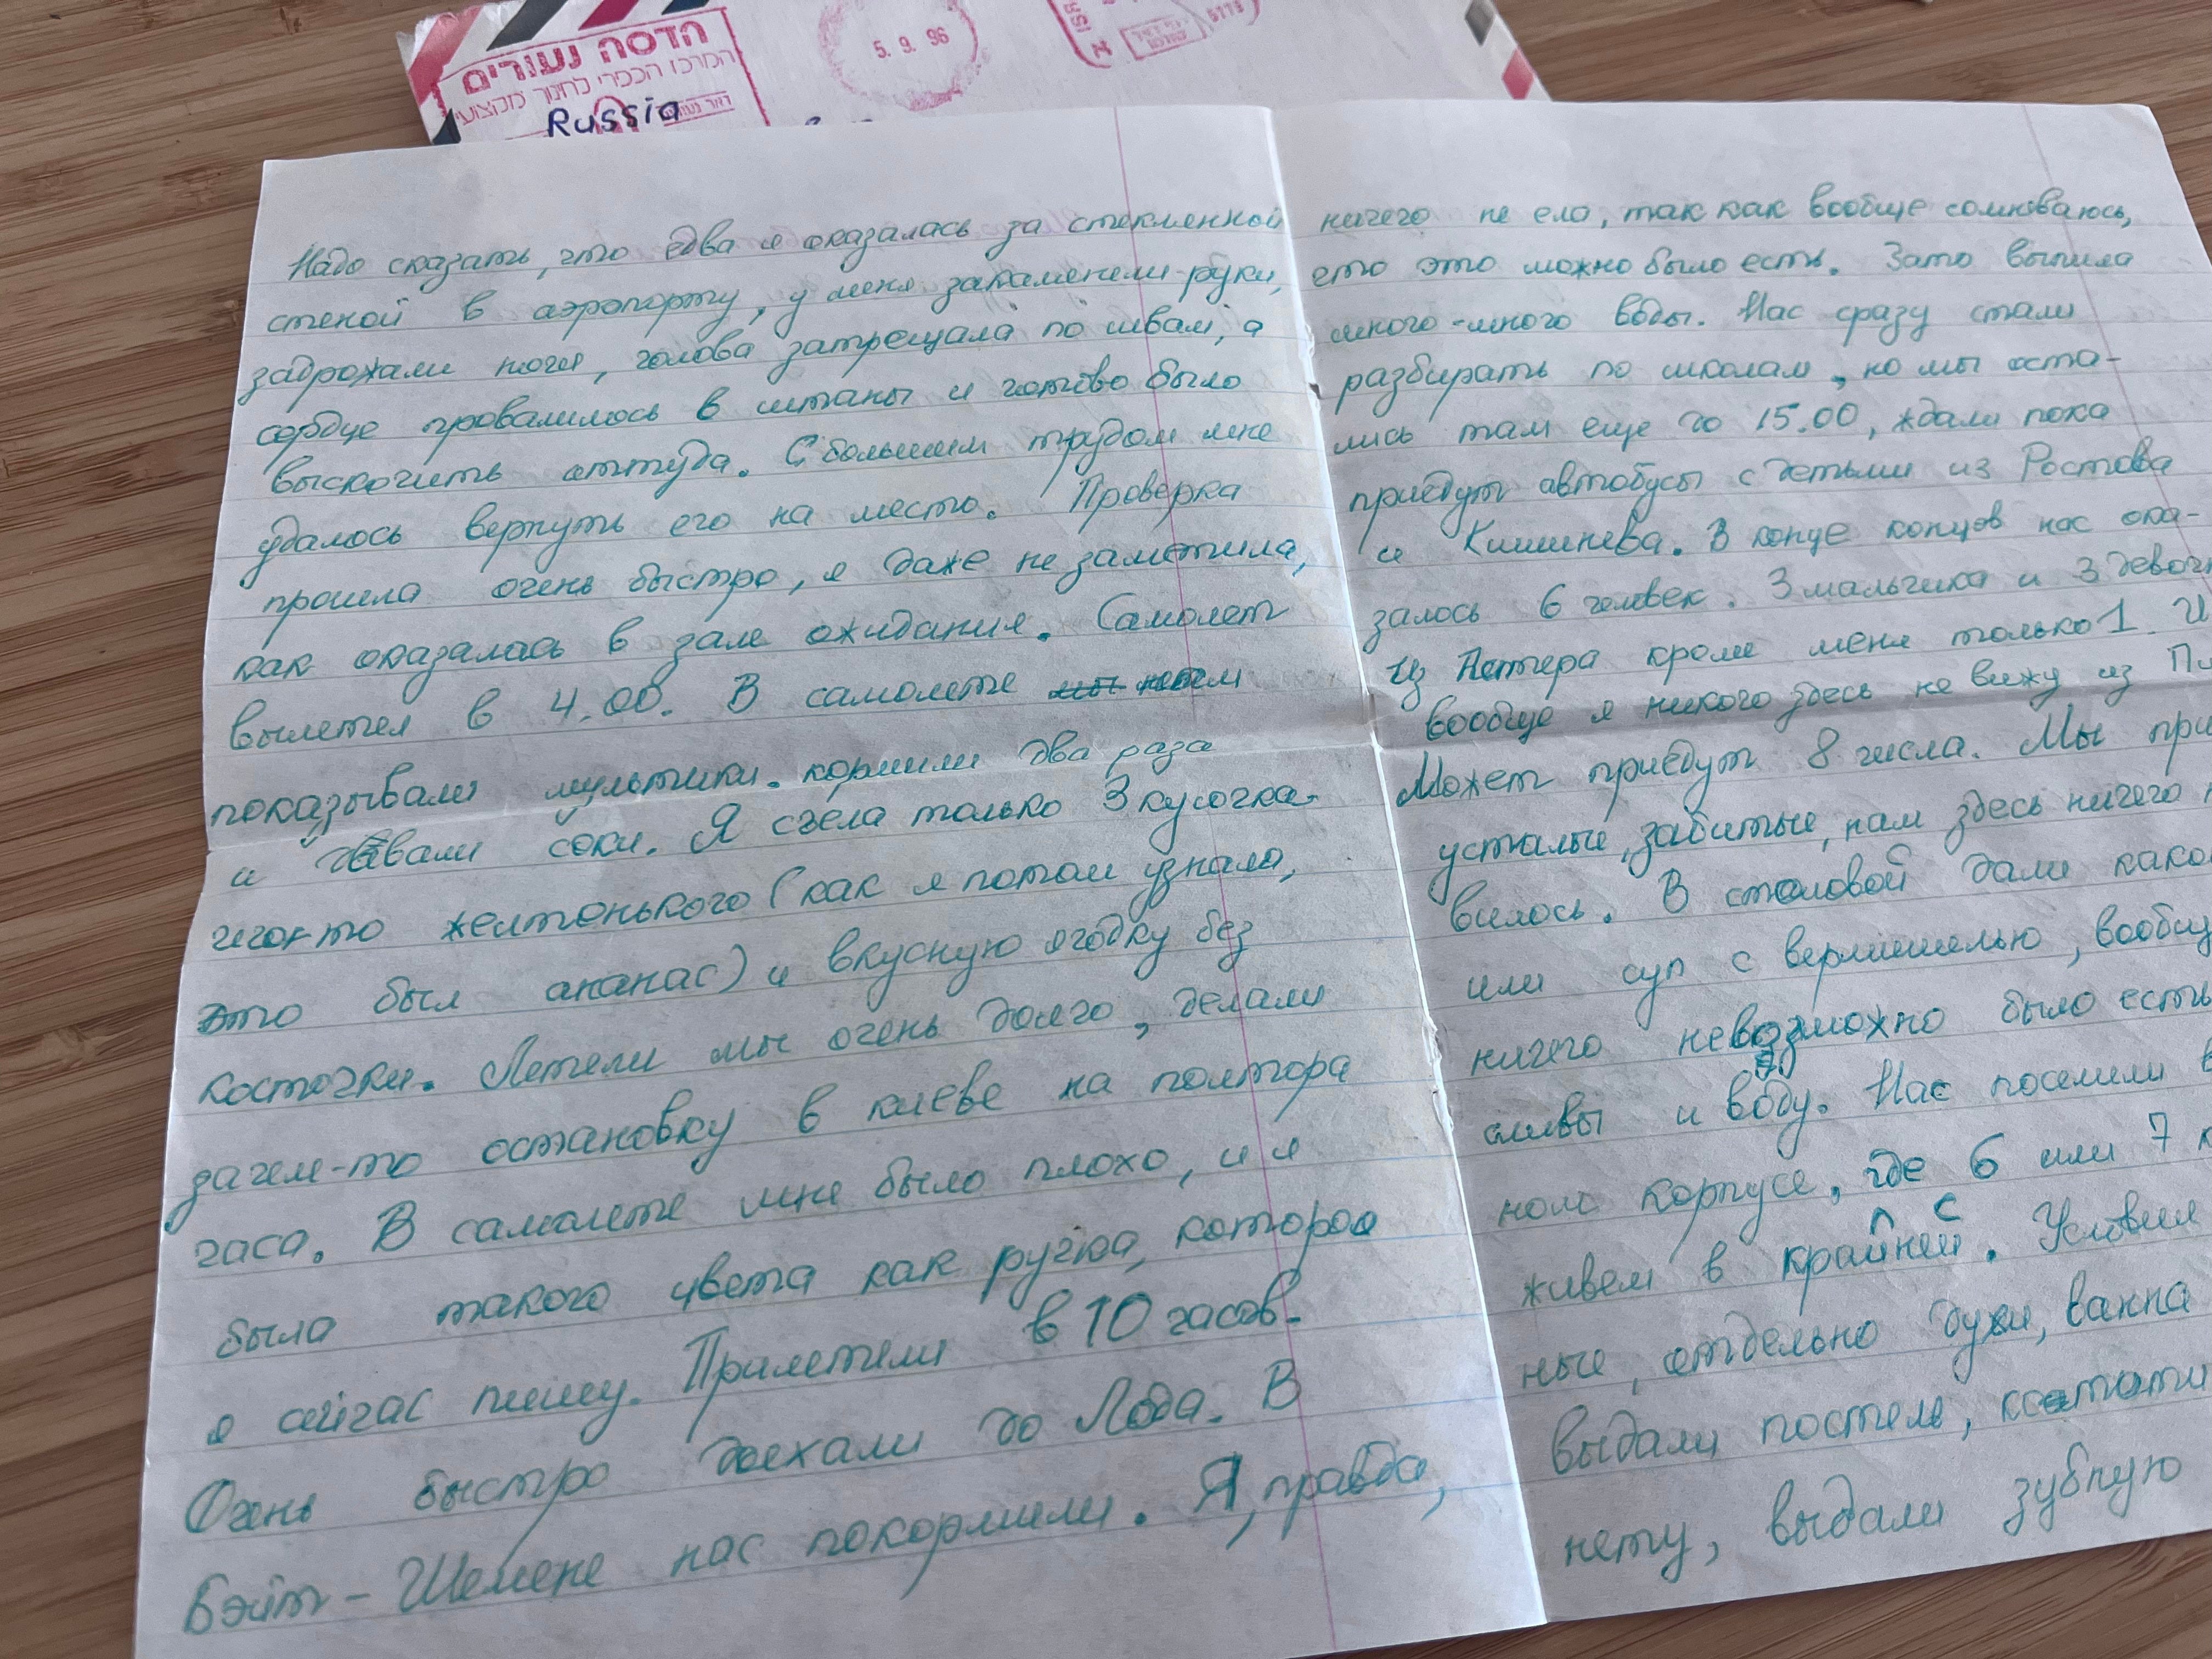 הדסה נעורים
המרכז הכפרי לחינוך מקצועי
Russia
5.9.96
Надо сказать, что едва я оказалась за стеклянной
стеной в аэропорту, у меня закаменели руки,
задрожали ноги, голова затрещала по швам, а
сердце провалилось в штаны и готово было
выскочить оттуда. С большим трудом мне
удалось вернуть его на место. Проверка
прошла очень быстро, я даже не заметила,
как оказалась в зале ожидания. Самолет
вылетел в 4.00. В самолете
показывали мультики. кормили два раза
и давали соки. Я съела только 3 кусочка
чего-то желтенького (как я потом узнала,
это был ананас) и вкусную ягодку без
косточки. Летели мы очень долго, делали
зачем-то остановку в киеве на полтора
часа. В самолете мне было плохо, и я
была такого цвета как ручка, которой
я сейчас пишу. Прилетели в 10 часов.
Очень быстро доехали до Лода. В
Бэйт-Шемене нас покормили. Я, правда,
ничего не ела, так как вообще сомневаюсь,
что это можно было есть. Зато выпила
много-много воды. Нас сразу стали
разбирать по школам, но мы оста-
лись там еще до 15.00, ждали пока
приедут автобусы с детьми из Ростова
и Кишинева. В конце концов нас ока-
залось 6 человек. 3 мальчика и 3 девоч
Из Питера кроме меня только 1. И
вообще я никого здесь не вижу из Пи
Может приедут 8 числа. Мы при
усталые, забитые, нам здесь ничего н
вилось. В столовой дали како
или суп с вермишелью, вообщ
ничего невозможно было есть
сливы и воду. Нас поселили в
ном корпусе, где 6 или 7 к
живем в крайней. Условия
ные, отдельно душ, ванна
выдали постель, кстати
нету, выдали зубную